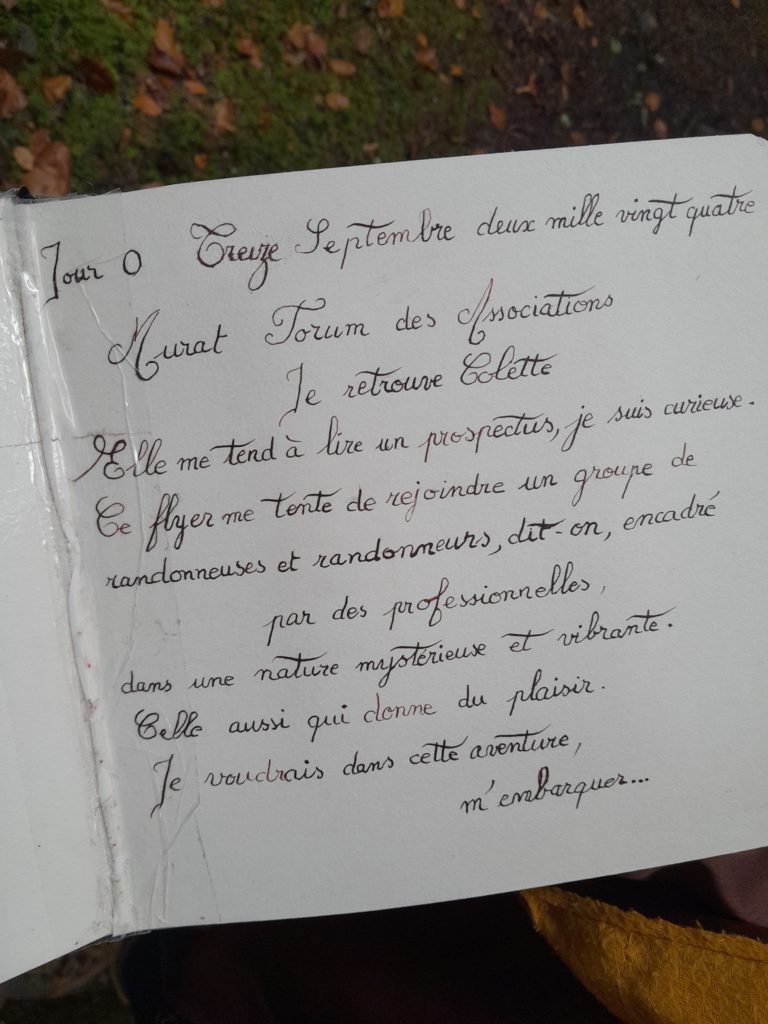 Jour 0 Treize Septembre deux mille vingt quatre
Murat Forum des Associations
Je retrouve Colette
Elle me tend à lire un prospectus, je suis curieuse.
Ce flyer me tente de rejoindre un groupe de
randonneuses et randonneurs, dit-on, encadré
par des professionnelles,
dans une nature mystérieuse et vibrante.
Celle aussi qui donne du plaisir.
Je voudrais dans cette aventure,
m'embarquer...